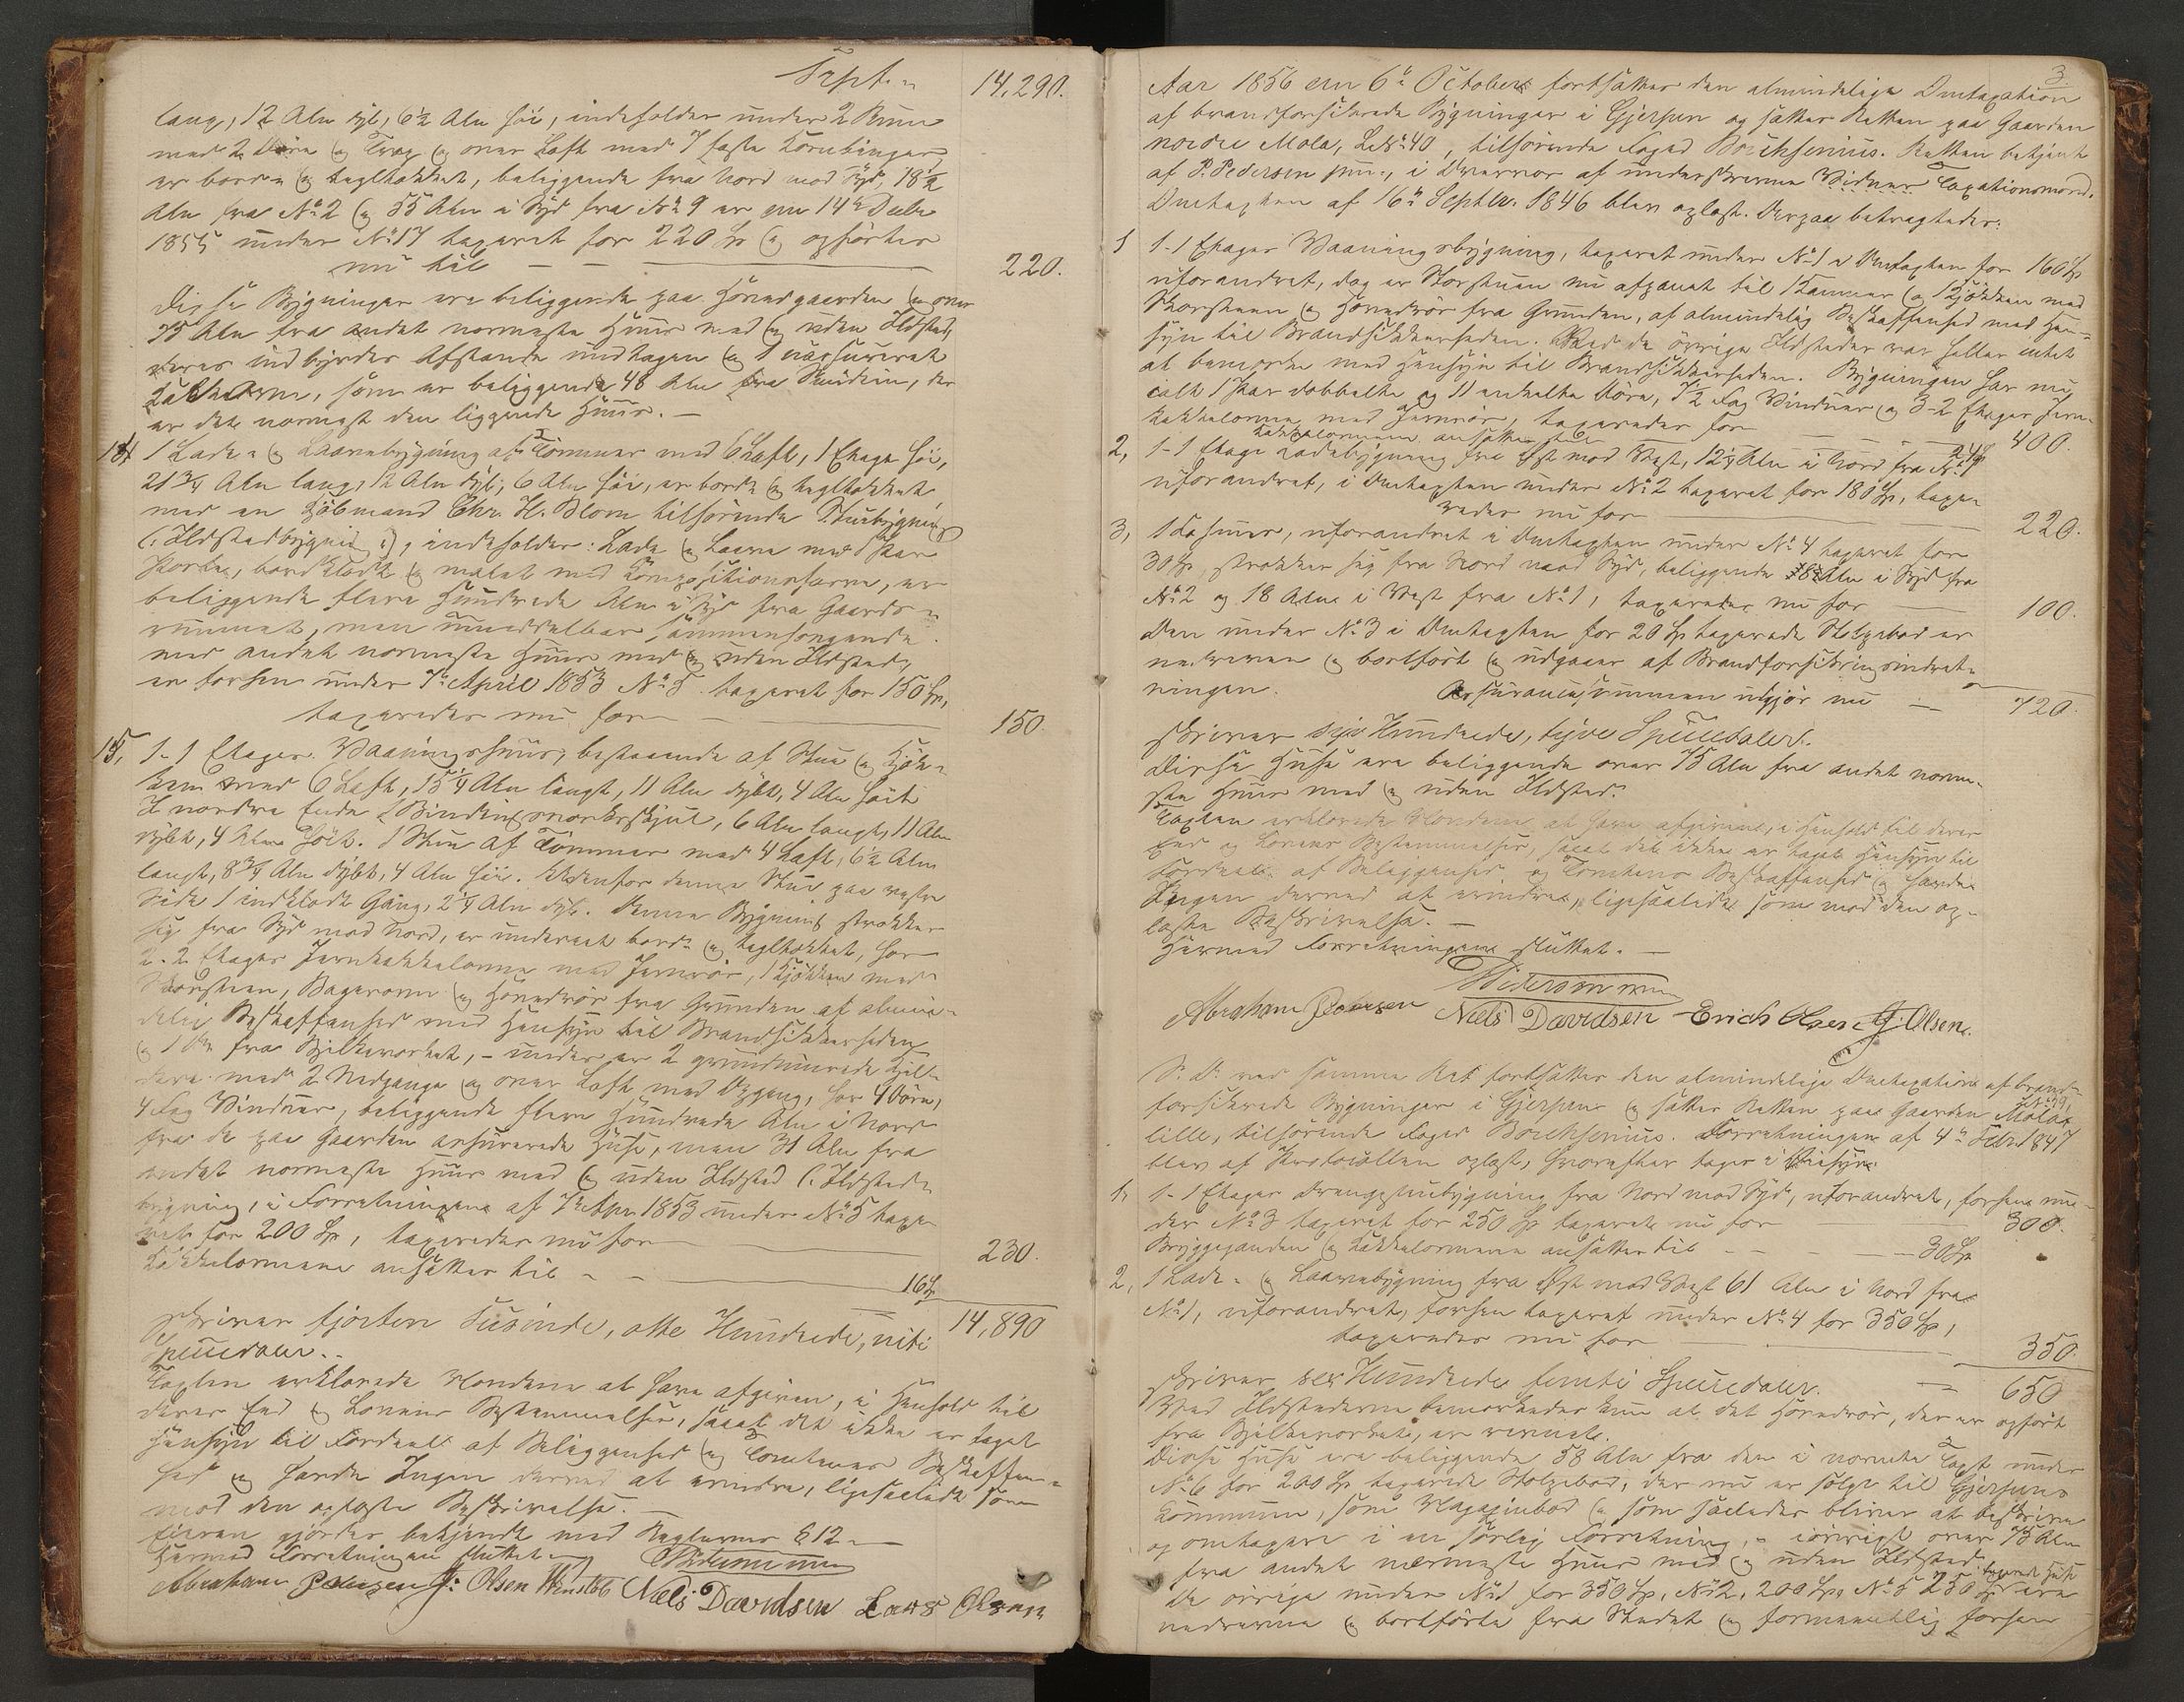 Transp. 14,290.
lang, 12 Alen dyb, 6½ Alen høi, indeholder under 2 Rum
med 2 Døre og Trap og over Loft med 7 faste Kornbinger,
er bord- og tagltækket, beliggende fra Nord mod Syd, 18½
Alen fra No 2 og 55 Alen i Syd fra No 9 er den 14de Decbr
1855 under No 17 taxeret for 220 Sp og opføres
nu til — — 220.
Disse Bygninger ere beliggende paa Hovedgaarden og over
75 Alen fra andet nærmeste Huus med og uden Ildsted,
deres indbyrdes Afstande undtagen og 1 uassureret
som er beliggende 48 Alen fra der
er det nærmest den liggende Huus. —
14, 1 Lade- og Laavebygning af Tømmer med 6 Laft, 1 Etage høi,
21¾ Alen lang, 12 Alen dyb, 6 Alen høi, er bord- og tagltækket
med en Kjøbmand Chr. H. Blom tilhørende Stuebygning
(: Ildstedbygning :), indeholder: Lade og Laave med 1 Par
Porte, bordklædt og malet med Compositionsfarve, er
beliggende flere Hundrede Alen i Syd fra Gaards-
rummet, men umiddelbar sammenhængende
med andet nærmeste Huus med og uden Ildsted,
er forhen under 7de April 1853 No 5 taxeret for 150 Sp,
taxeredes nu for — — 150.
15, 1-1 Etages Vaaningshuus, bestaaende af Stue og Kjøk-
ken med 6 Laft, 15¼ Alen langt, 11 Alen dybt, 4 Alen høit
I nordre Ende 1 Bindingsverksskjul, 6 Alen langt, 11 Alen
dybt, 4 Alen høit. 1 Stue af Tømmer med 4 Laft, 6½ Alen
langt, 8¾ Alen dybt, 4 Alen høi. Udenfor denne Stue paa vestre
Side 1 indklædt Gang, 2¼ Alen dyb. Denne Bygning strækker
sig fra Syd mod Nord, er underalt bord- og tagltækket, har
2-2 Etages Jernkakkelovne med Jernrør, 1 Kjøkken med
Skorsteen, Bagerovn og Hovedrør fra Grunden af almin-
delig Beskaffenhed med Hensyn til Brandsikkerheden
og 1 fra Bjelkeværket, — under er 2 grundmurede Kjel-
dere med 2 Nedgange og over Loft med Opgang, har 4 Døre,
4 Fag Vinduer, beliggende flere Hundrede Alen i Nord
fra de paa Gaarden assurerede Huse, men 31 Alen fra
andet nærmeste Huus med og uden Ildsted (: Ildsteds-
bygning, i Forretningen af 7de Apr. 1853 under No 5 taxe-
ret for 200 Sp, taxeredes nu for — 230.
Kakkelovnene ansættes til — — 16 Sp
skriver fjorten Tusinde, otte Hundrede, niti 14,890
Speciedaler..
Taxten erklærede Mændene at have afgiven, i Henhold til
deres Eed og Lovens Bestemmelser, saaat det ikke er taget
Hensyn til Fordeele af Beliggenhed og Tomtenes Beskaffen-
hed og havde Ingen derved at erindre, ligesaalidt som
mod den oplæste Beskrivelse. —
Eieren gjordes bekjendt med Reglernes § 12. —
Hermed Forretningen sluttet. — P Pedersen jun
Abraham Pedersen J: Olsen Winstöb Niels Davidsen Lars Olsen
3.
Aar 1856 den 6te October fortsættes den almindelige Omtaxation
af brandforsikrede Bygninger i Gjerpen og sættes Retten paa Gaarden
nordre Mæla, L No 40, tilhørende Foged Borchsenius. Retten betjent
af P. Pedersen jun., i Overvær af underskrevne Vidner Taxationsmænd.
Omtaxten af 16de Septbr. 1846 blev oplæst. Derpaa betragtedes:
1 1-1 Etages Vaaningsbygning, taxeret under No 1 i Omtaxten for 160 Sp
uforandret, dog er Storstuen nu afpanet til 1 Kammer og 1 Kjøkken med
Skorsteen og Hovedrør fra Grunden, af almindelig Beskaffenhed med Hen-
syn til Brandsikkerheden. Ved de øvrige Ildsteder var heller intet
at bemærke med Hensyn til Brandsikkerheden. Bygningen har nu
ialt 1 Par dobbelte og 11 enkelte Døre, 7½ Fag Vinduer og 3-2 Etages Jern-
kakkelovne med Jernrør, taxeredes for — — 400.
Kakkelovnene ansættes til 24 Sp
2, 1-1 Etage Ladebygning fra Øst mod Vest, 12¼ Alen i Nord fra No 1
uforandret, i Omtaxten under No 2 taxeret for 180 Sp, taxe-
redes nu for — 220.
3, 1 Fæhuus, uforandret i Omtaxten under No 4 taxeret for
30 Sp, strækker sig fra Nord mod Syd, beliggende Alen i Syd fra
No 2 og 18 Alen i Vest fra No 1, taxeredes nu for — 100.
Den under No 3 i Omtaxten for 20 Sp taxerede Stolpebod er
nedreven og bortført og udgaaer af Brandforsikringsindret-
ningen. Assurancesummen udgjør nu — 720.
skriver syv Hundrede, tyve Speciedaler.
Disse Huse ere beliggende over 75 Alen fra andet nærme-
ste Huus med og uden Ildsted.
Taxten erklærede Mændene at have afgivne, i Henhold til deres
Eed og Lovens Bestemmelser, saaat det ikke er taget Hensyn til
Fordeele af Beliggenhed og Tomtens Beskaffenhed og havde
Ingen derved at erindre, ligesaalidt som mod den op-
læste Beskrivelse. —
Hermed Forretningen sluttet. —
P Pedersen jun
Abraham Pedersen Niels Davidsen Erich Olsen J. Olsen.
S. D. ved samme Ret fortsættes den almindelige Omtaxation af brand-
forsikrede Bygninger i Gjerpen og sættes Retten paa Gaarden Mæla
L No 39,
lille, tilhørende Foged Borchsenius. Forretningen af 4de Febr 1847
blev af Protocollen oplæst, hvorefter toges i Øiesyn:
1, 1-1 Etages Drengestuebygning fra Nord mod Syd, uforandret, forhen un-
der No 3 taxeret for 250 Sp taxeret nu for — 300.
Bryggepanden og Kakkelovnene ansættes til — — 30 Sp
2, 1 Lade- og Laavebygning fra Øst mod Vest 61 Alen i Nord fra
No 1, uforandret, forhen taxeret under No 4 for 350 Sp,
taxeredes nu for — 350.
skriver sex Hundrede femti Speciedaler. — 650
Ved Ildstederne bemærkedes kun at det Hovedrør, der er opført
fra Bjelkeværket, er
Disse Huse ere beliggende 58 Alen fra den i nævnte Taxt under
No 6 for 200 Sp taxerede Stolpebod, der nu er solgt til Gjerpens
Kommune, som Magazinbod og som saaledes bliver at beskrive
og omtaxere i en særlig Forretning, — iøvrigt over 75 Alen
fra andet nærmeste Huus med og uden Ildsted.
De øvrige under No 1 for 350 Sp, No 2, 200 Sp, No 5 250 Sp taxerede Huse ere
nedrevne og bortførte fra Stedet og formeentlig forhen